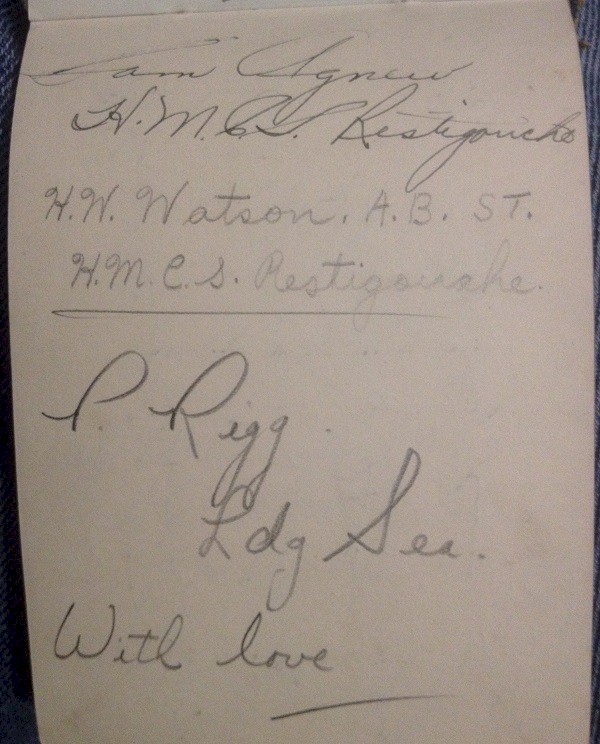 Sam Agnew
H.M.C.S. Restigouche
H.W. Watson. A.B. ST.
H.M.C.S. Restigouche.
P. Rigg
Ldg Sea.
With love